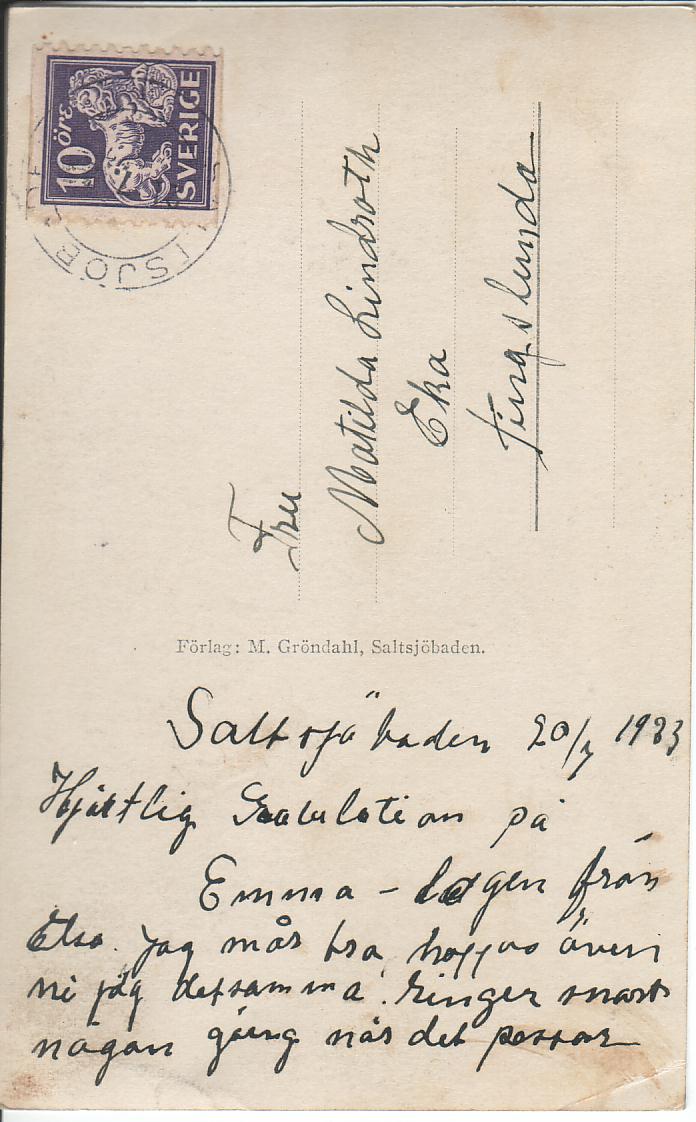 10 öre
SVERIGE
Fru
Matilda Lindroth
Eka
Tingslunda
Förlag: M. Gröndahl, Saltsjöbaden.
Saltsjöbaden 20/7 1933
Hjärtlig Gratulation på
Emma-dagen från
Elsa. Jag mår bra, hoppas även
ni detsamma. Ringer snart
någon gång når det passar